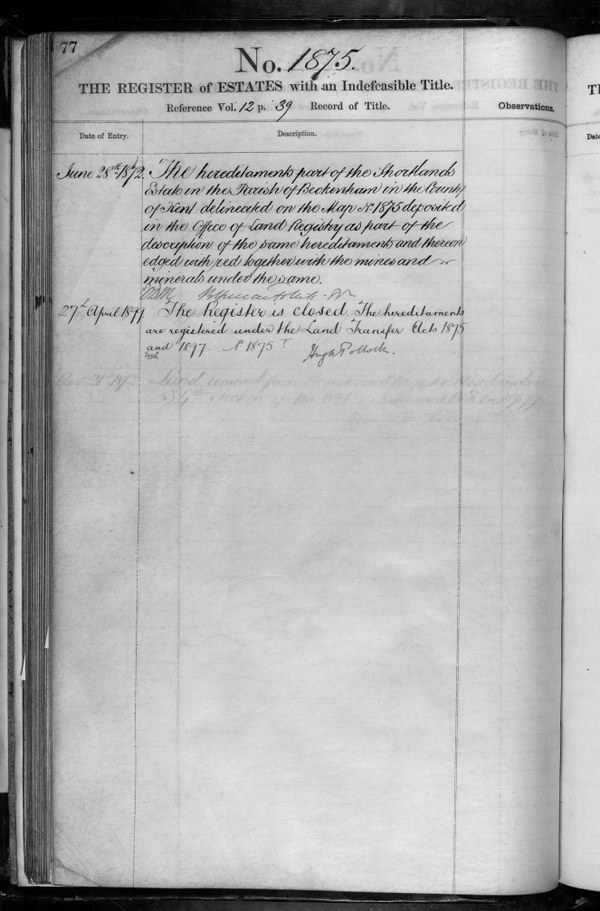 77
No. 1875.
THE REGISTER of ESTATES with an Indefeasible Title.
Reference Vol. 12 p. 39 Record of Title.
Observations.
Date of Entry.
Description.
June 28th 1872.
The hereditaments part of the Shortlands
Estate in the Parish of Beckenham in the County
of Kent delineated on the Map No. 1875 deposited
in the Office of Land Registry as part of the
description of the same hereditaments and thereon
edged with red together with the mines and
minerals under the same.
27th April 1899
The Register is closed. The hereditaments
are registered under the Land Transfer Acts 1875
and 1897. No 1875
Hugh Pollock.